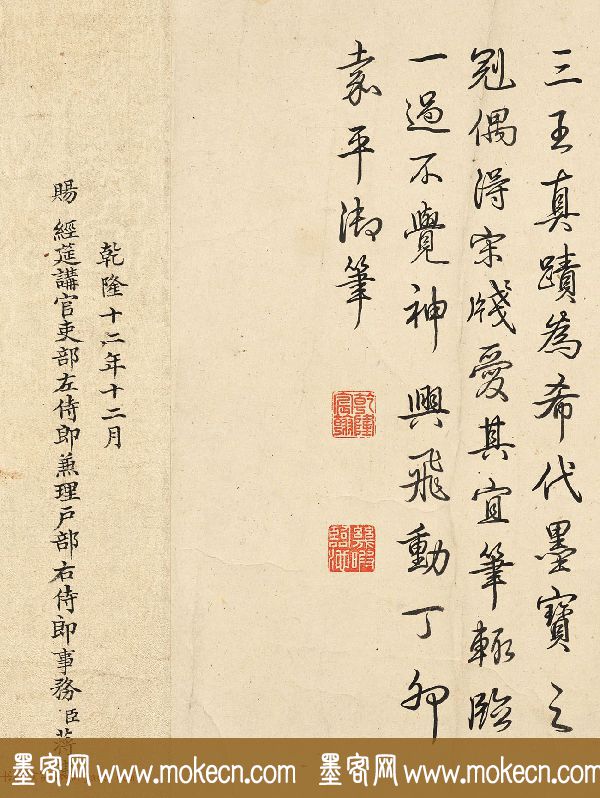 三王真蹟為希代墨寶之
冠偶得宋牋愛其宜筆輙臨
一過不覺神興飛動丁卯
嘉平御筆
乾隆宸翰
幾暇臨池
乾隆十二年十二月
賜經筵講官吏部左侍郎兼理戶部右侍郎事務臣蔣
墨客网 www.mokecn.com 墨客网 www.mokecn.com